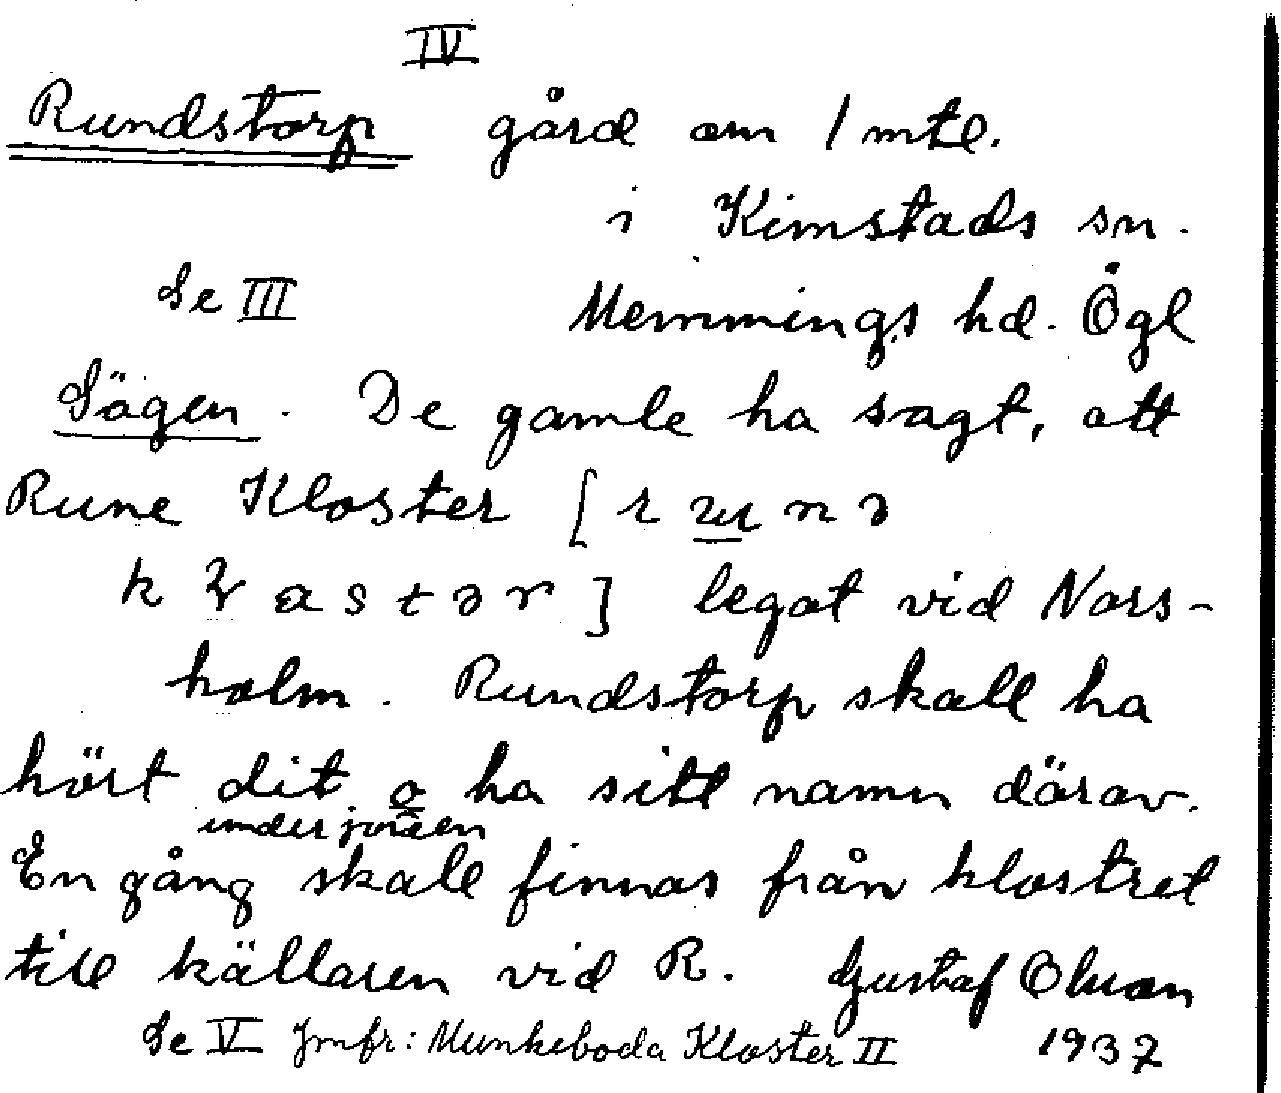 IV
Rundstorp gård om 1 mtl.
i Kimstads sn.
Se III Memmings hd. Ögl
Sägen. De gamle ha sagt, att
Rune Kloster [
] legat vid Nors-
holm. Rundstorp skall ha
hört dit o ha sitt namn därav.
under jorden
En gång skall finnas från klostret
till källaren vid R. Gustaf
Se V Jmfr: Munkeboda Kloster II 1937